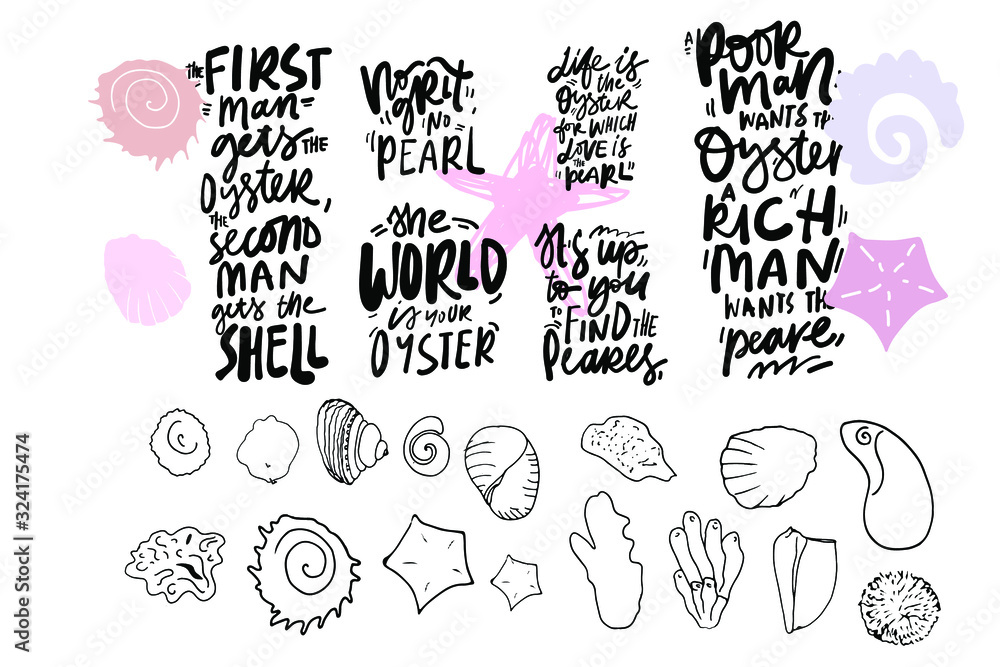 THE FIRST
man
gets THE
OYSTER,
THE second
MAN
gets the
SHELL
No GRIT,
NO
PEARL
The
WORLD
is YOUR
OYSTER
Life is
the
Oyster
for WHICH
LOVE is
THE
"PEARL"
It's up
to you
TO FIND THE
Peares,
A POOR
man
WANTS TH
Oyster
A
RICH
MAN
WANTS TH
peare,
Adobe Stock | #324175474